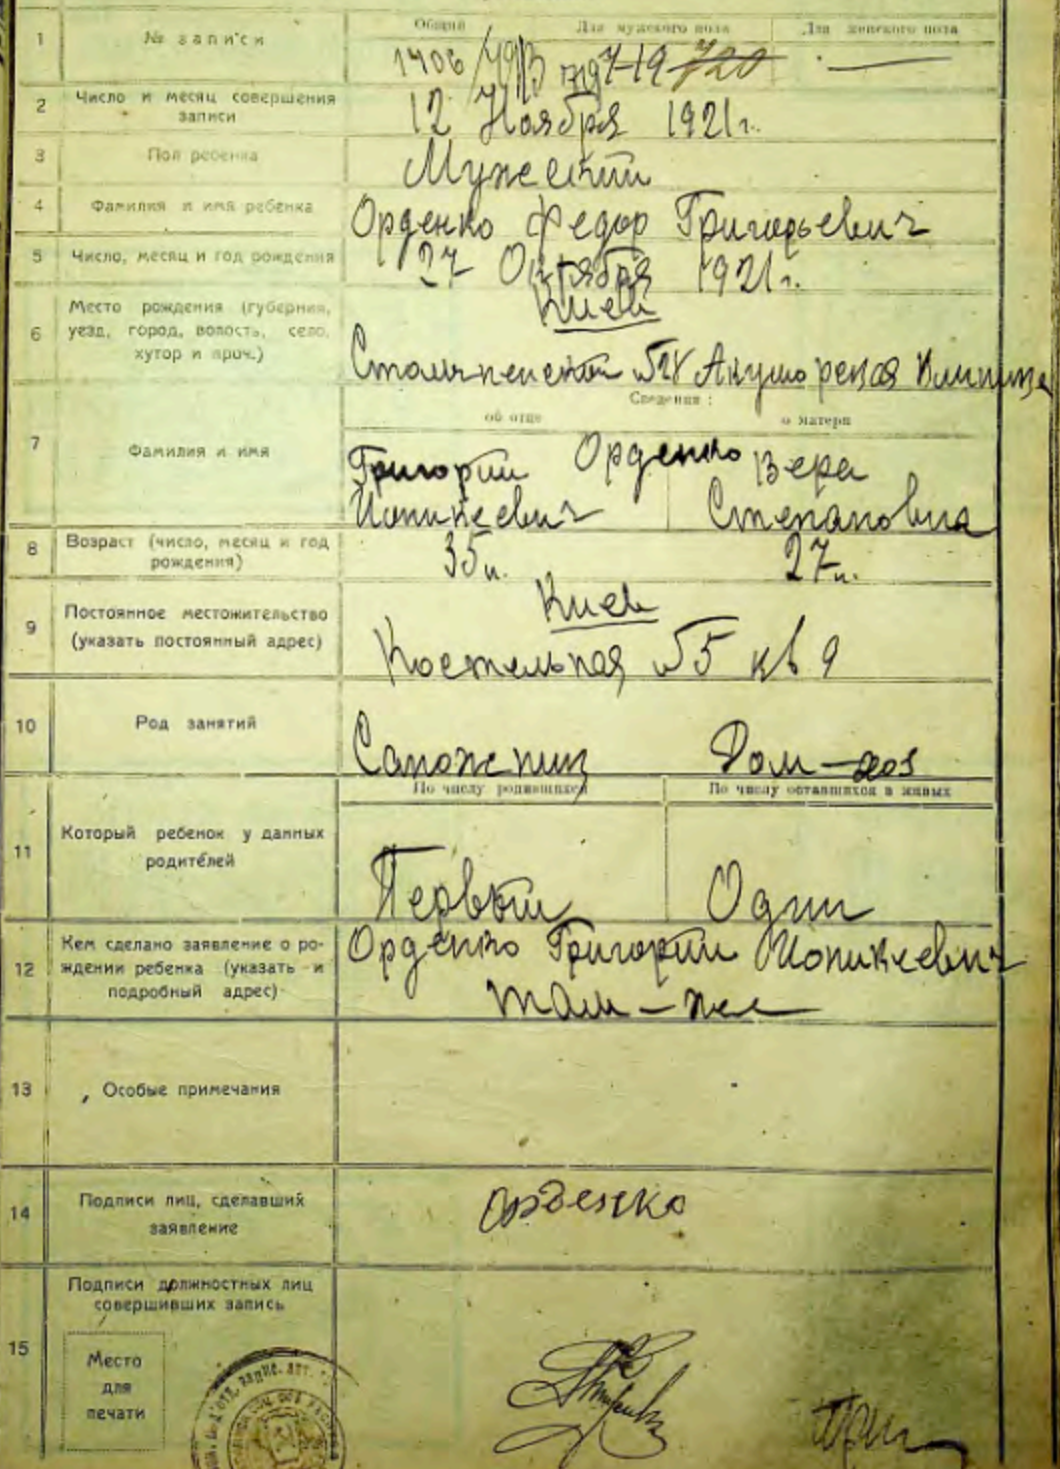 1 № записи
Общий Для мужского пола Для женского пола
1406 720 —
2 Число и месяц совершения
записи
12 Ноября 1921 г.
3 Пол ребенка
Мужеский
4 Фамилия и имя ребенка
Орденко Федор Григорьевич
5 Число, месяц и год рождения
27 Октября 1921 г.
6 Место рождения (губерния,
уезд, город, волость, село,
хутор и проч.)
Киев
Акушорская Клиника
Сведения:
об отце о матери
7 Фамилия и имя
Орденко
Григорий Вера
Ионикеевич Степановна
8 Возраст (число, месяц и год
рождения)
35 л. 27 л.
9 Постоянное местожительство
(указать постоянный адрес)
Киев
Костельная №5 кв 9
10 Род занятий
Сапожник Дом-хоз
По числу родившихся По числу оставшихся в живых
11 Который ребенок у данных
родителей
Первый Один
12 Кем сделано заявление о ро-
ждении ребенка (указать и
подробный адрес)
Орденко Григорий Ионикеевич
там-же
13 Особые примечания
14 Подписи лиц, сделавших
заявление
Орденко
15 Подписи должностных лиц
совершивших запись
Место
для
печати